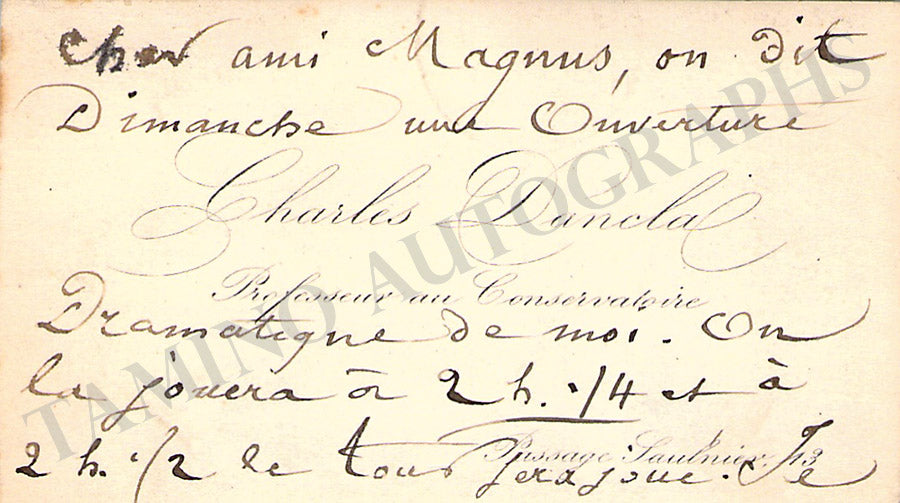 Cher ami Magnus, on dit
Dimanche une Ouverture
Charles Dancla
Professeur au Conservatoire
Dramatique de moi. On
la jouera à 2 h. 1/4 et à
2 h. 1/2 le tour sera joué. Je
Passage Saulnier, 13
TAMINO AUTOGRAPHS